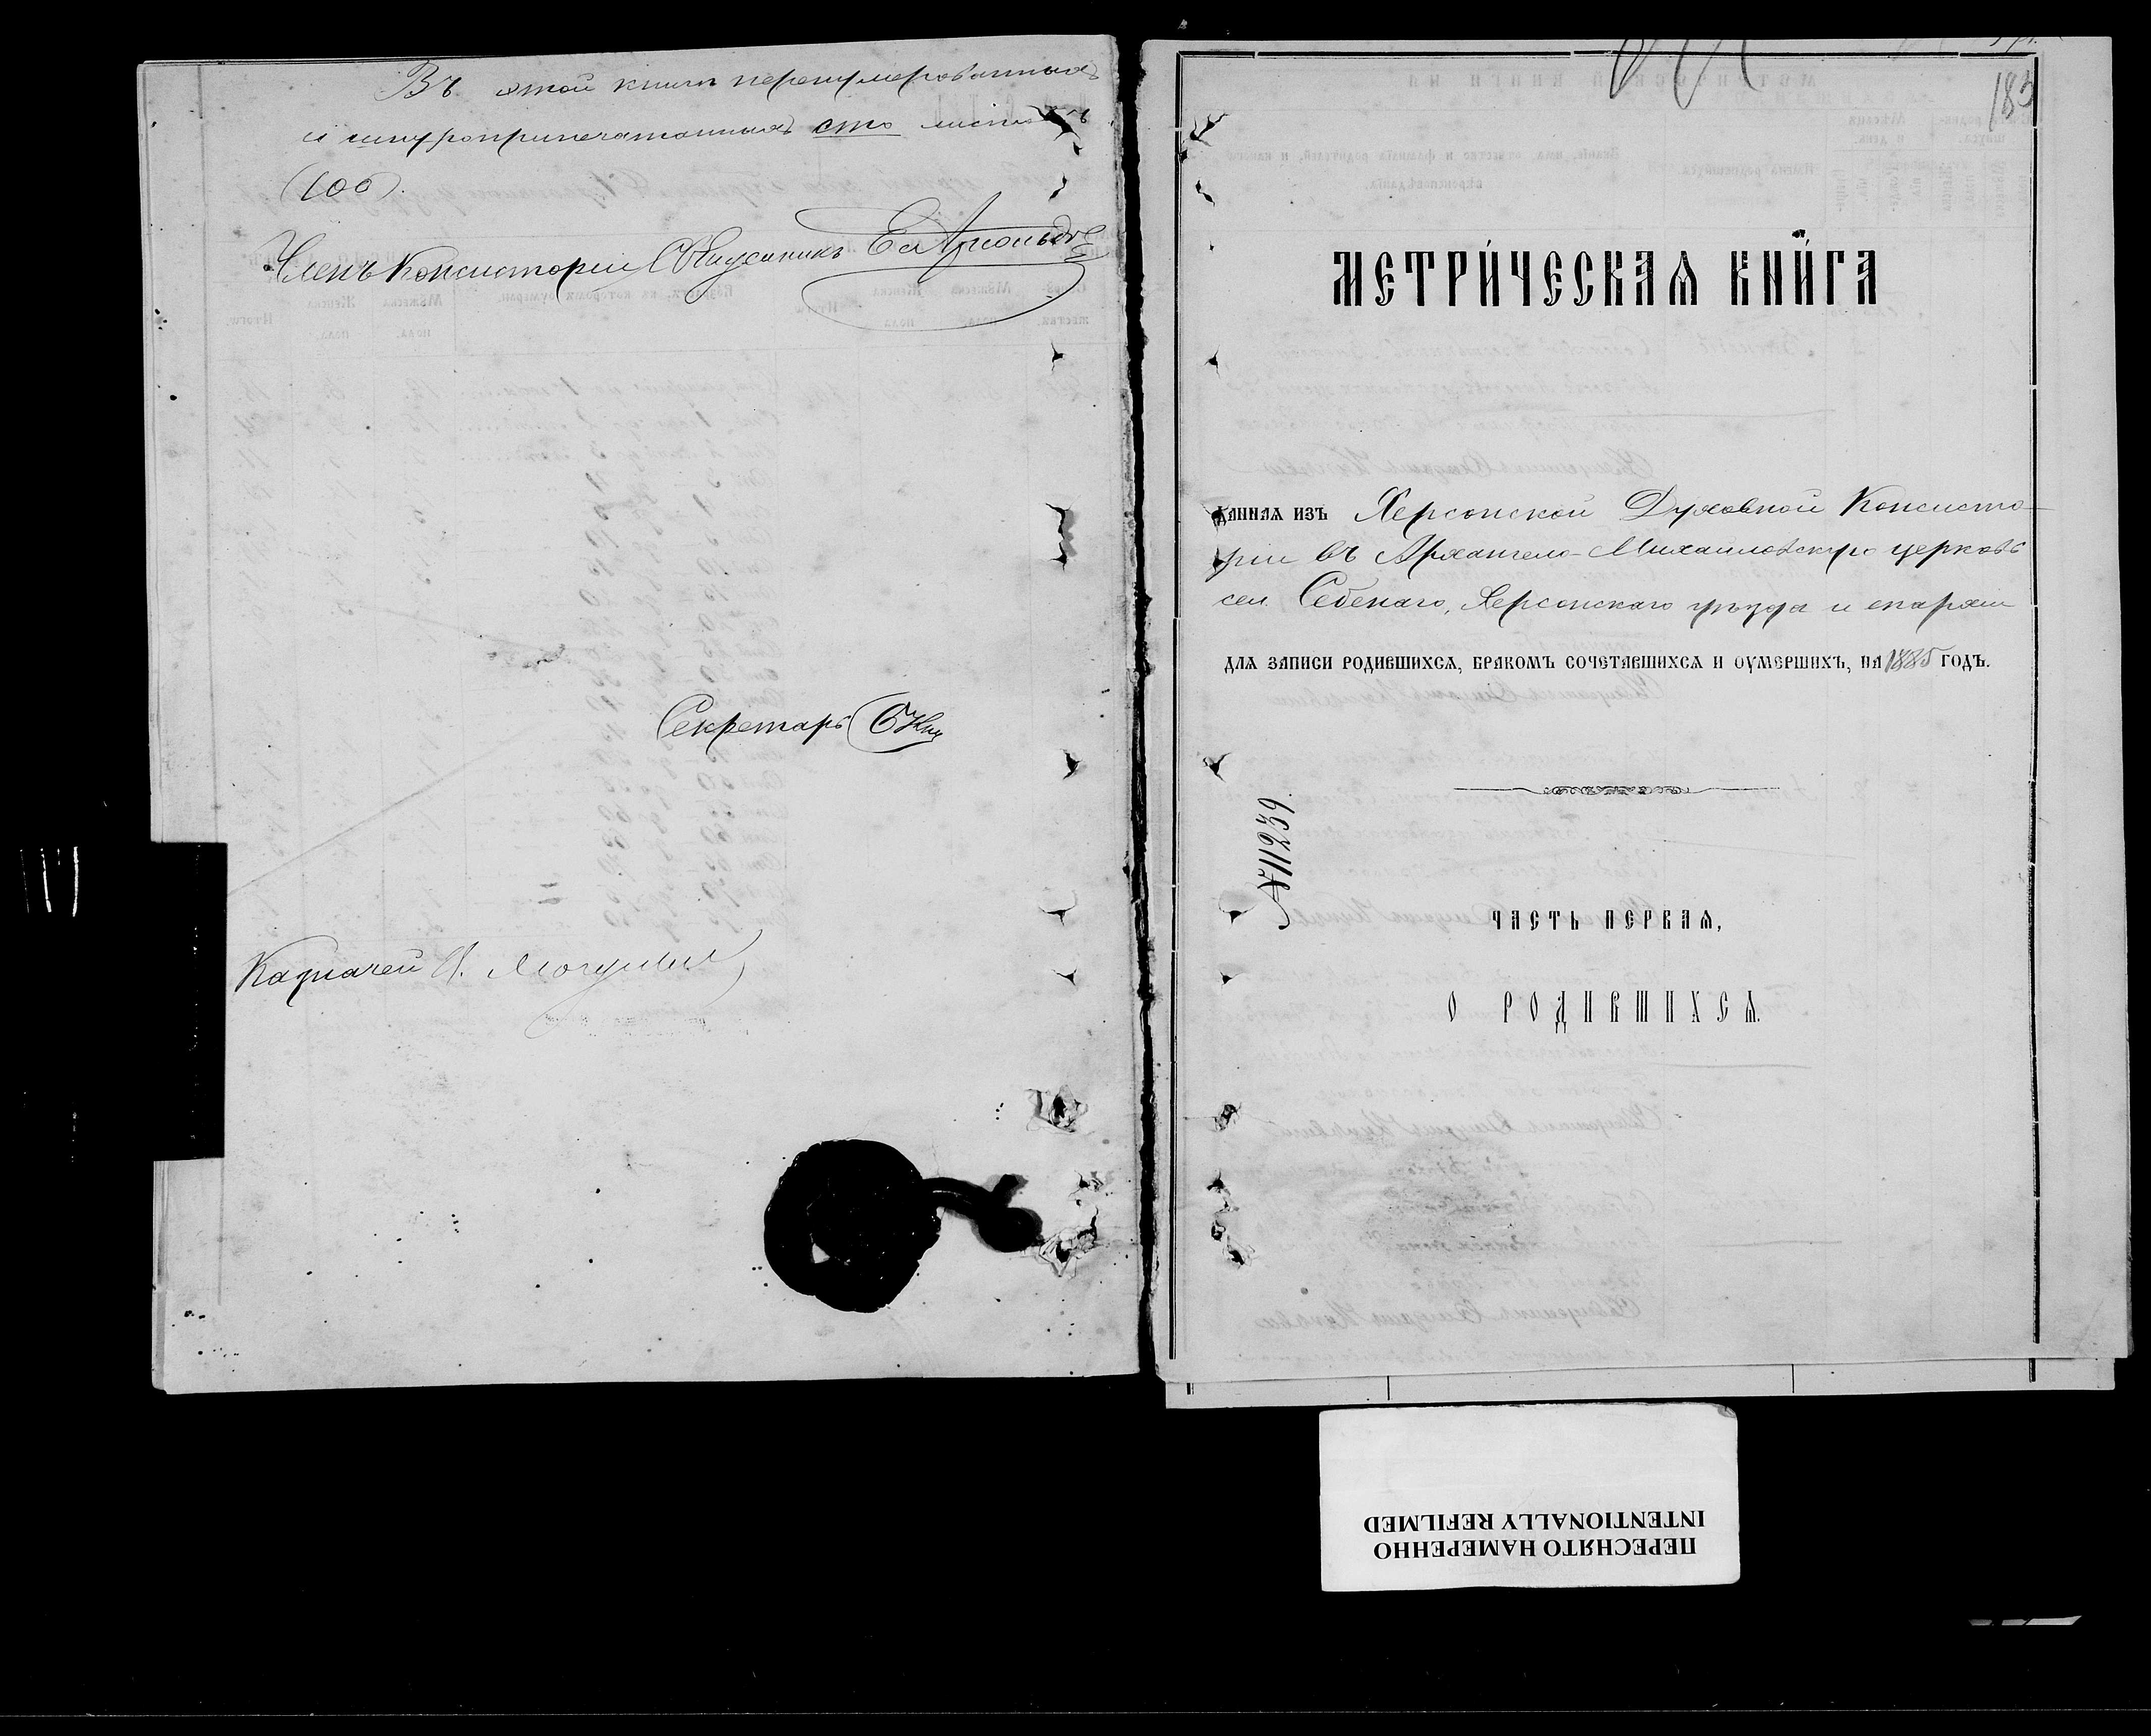 Въ этой книгѣ перенумерованныхъ
и шнуроприпечатанныхъ сто листовъ
(100).
Членъ Консисторіи Священникъ
Секретарь
Казначей
183
МЕТРИ́ЧЕСКАѦ КНИ́ГА
ДАННАѦ ИЗЪ Херсонской Духовной Консисто-
ріи въ Архангело-Михайловскую церковь
сел. Себенаго, Херсонскаго уѣзда и епархіи
ДЛѦ ЗАПИСИ РОДИВШИХСѦ, БРАКОМЪ СОЧЕТАВШИХСѦ И ОУМЕРШИХЪ, НА 1885 ГОДЪ.
№11239.
ЧАСТЬ ПЕРВАѦ,
О РОДИВШИХСѦ.
ПЕРЕСНЯТО НАМЕРЕННО
INTENTIONALLY REFILMED